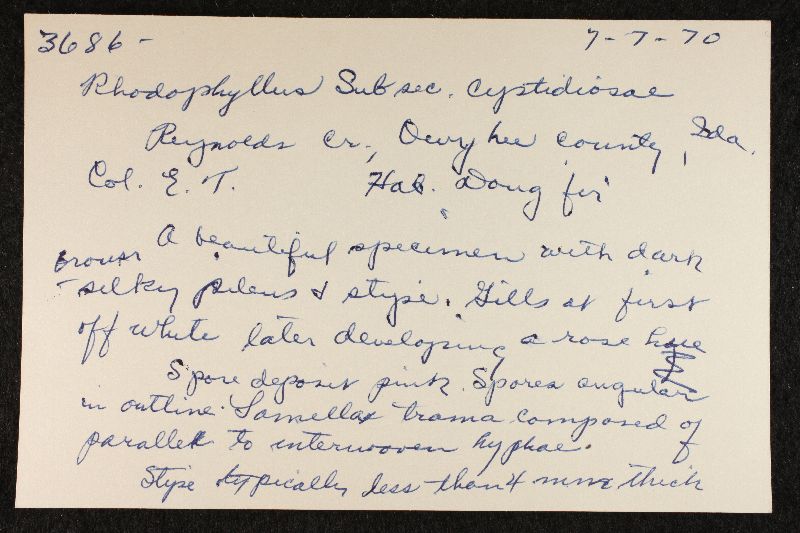 3686 - 7-7-70
Rhodophyllus Subsec. Cystidiosae
Reynolds Cr., Owyhee County, Ida.
Col. E. T. Hab. Doug fir
A beautiful specimen with dark
brown silky pileus & stype. Gills at first
off white later developing a rose hue
Spore deposit pink. Spores angular
in outline. Lamellae trama composed of
parallel to interwoven hyphae.
Stype typically less than 4 mm thick